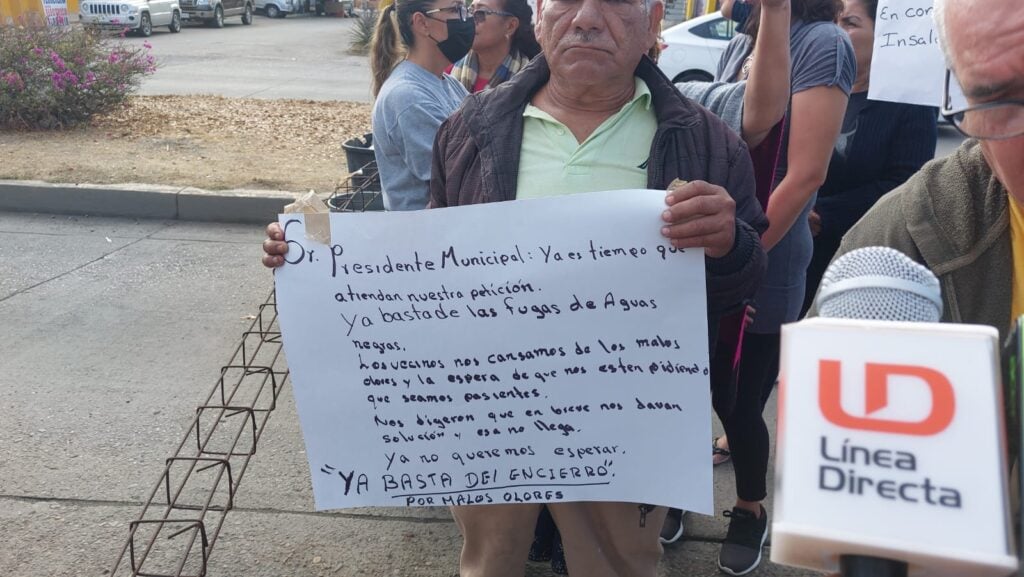 Sr. Presidente Municipal: Ya es tiempo que
atiendan nuestra petición.
Ya basta de las fugas de Aguas
negras.
Los vecinos nos cansamos de los malos
olores y la espera de que nos esten pidiendo
que seamos pasientes.
Nos digeron que en breve nos davan
solución y esa no llega.
Ya no queremos esperar.
"YA BASTA DEl ENCIERRO".
POR MALOS OLORES
En con
Insal
UD
Línea
Directa